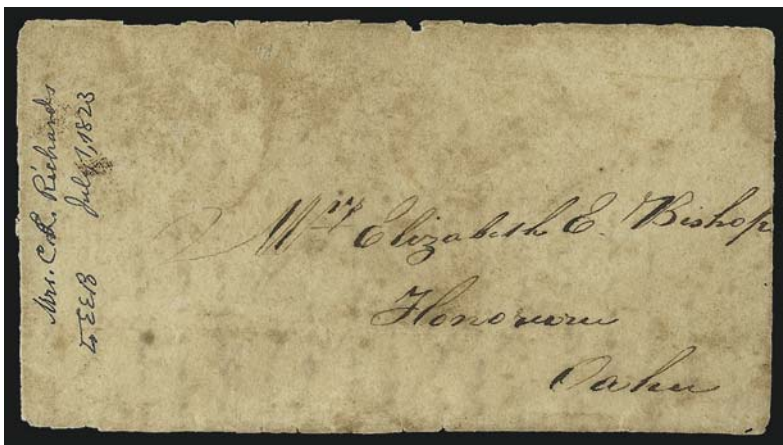 Mrs. C. L. Richards
July 1, 1823
to EEB
Mrs Elizabeth E. Bishop
Honoruru
Oahu